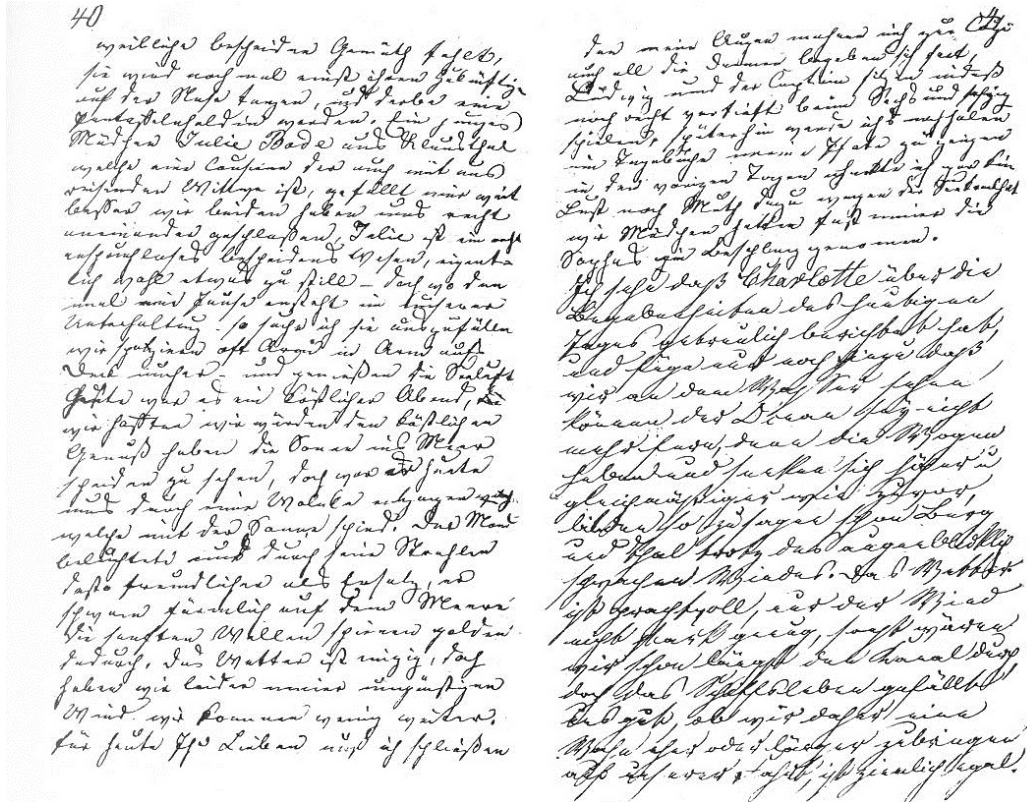 40
weibliche bescheidne Gemüth fehlt,
sie wird noch mal einst ihrem
auf der Nase tanzen, und derbe eine
werden. Ein junges
Mädchen Julie Bode aus Klausthal
welche eine Cousine der auch mit uns
reisenden Wittwe ist, gefällt mir weit
besser wir beiden haben uns recht
aneinander geschloßen, Julie ist ein recht
anspruchloses bescheidenes Wesen, eigent-
lich wohl etwas zu still – doch wo denn
mal eine Pause entsteht in unserer
Unterhaltung so suche ich sie auszufüllen
wir spatzieren oft Arm in Arm aufs
Deck umher, und genießen die Seeluft
Heute war es ein köstlicher Abend,
wir hofften wir würden den köstlichen
Genuß haben die Sonne ins Meer
scheiden zu sehen, doch war es heute
uns durch eine Wolke entzogen
welche mit der Sonne schied. Der Mond
beleuchtete uns durch seine Strahlen
desto freundlicher als Ersatz, er
schwamm förmlich auf dem Meere
die sanften Wellen schienen golden
dadurch. Das Wetter ist einzig, doch
haben wir leider immer ungünstigen
Wind. wir kommen wenig weiter.
für heute Ihr Lieben muß ich schließen
41
denn meine Augen mahnen mich zur
auch all die Damen begeben sich fort,
Ludwig und der Captain sitzen indeß
noch recht vertieft beim Sechs und sechzig
spielen, späterhin werde ichs nachholen
im Tagebuche meine zu zeigen
in den vorigen Tagen hatte ich gar kein
Lust noch Muth dazu wegen der Seekrankheit
wir Mädchen hatten fast immer die
Sophas in Beschlag genommen.
Ich sehe daß Charlotte über die
Begebenheiten des heutigen
Tages getreulich berichtet hat,
und füge nur noch hinzu daß
wir an dem Wasser sehen
können der Ocean sey nicht
mehr fern, denn die Wogen
heben und senken sich höher u
gleichmäßiger wie zuvor,
bilden so zu sagen schon Berg
und Thal trotz des augenblicklich
schwachen Windes. Das Wetter
ist prachtvoll, nur der Wind
nicht stark genug, sonst wären
wir schon längst den Kanal durch
doch das Schiffsleben gefällt
uns gut, ob wir daher eine
Woche eher oder länger zubringen
auf unserer Fahrt, ist ziemlich egal.